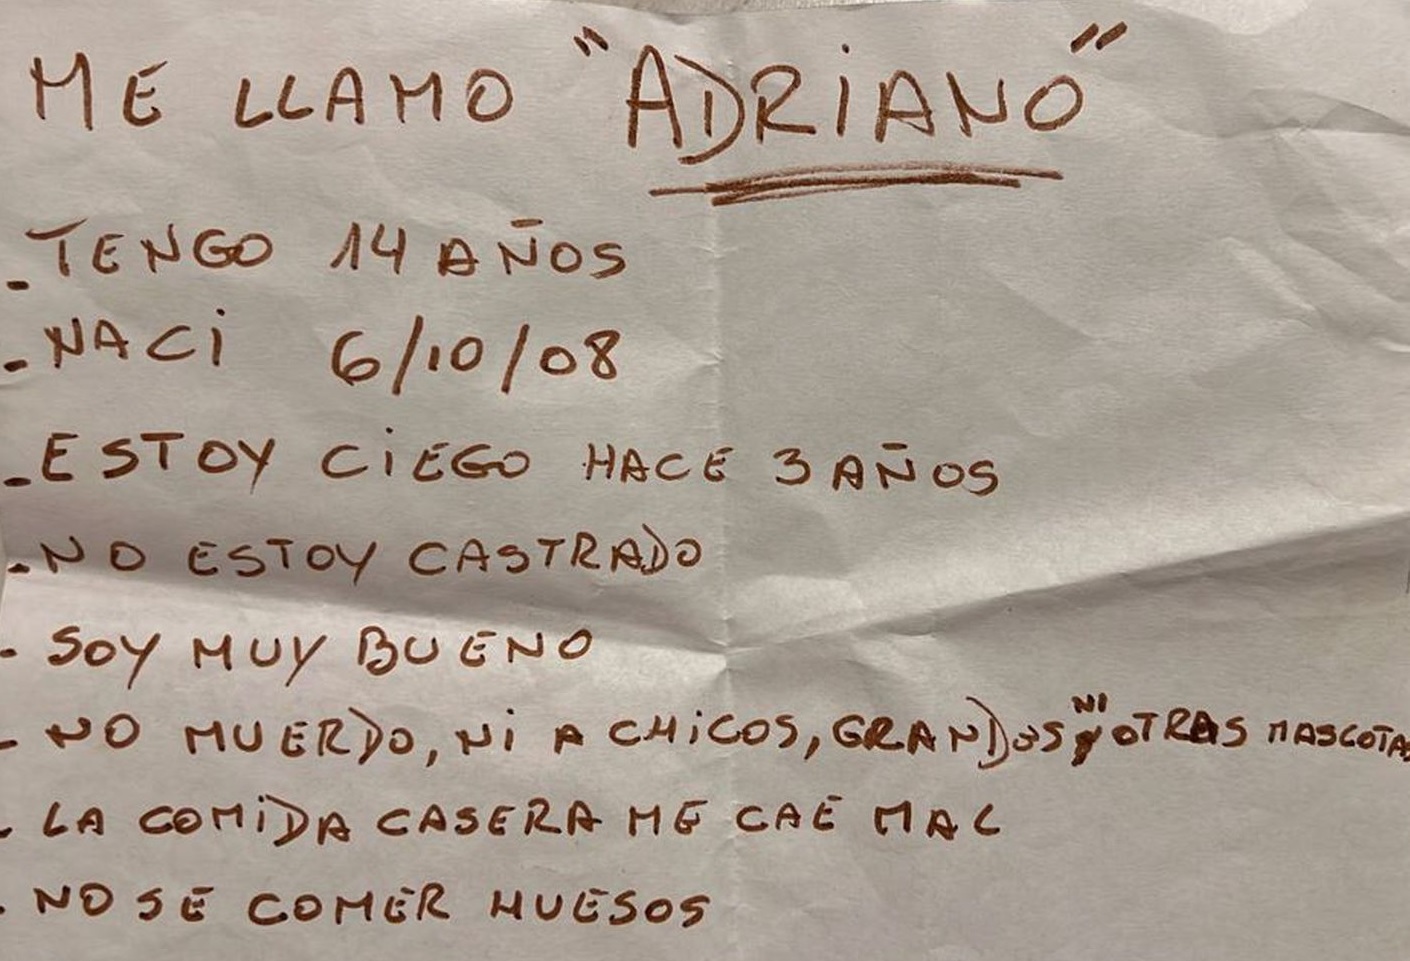 ME LLAMO "ADRIANO"
- TENGO 14 AÑOS
- NACI 6/10/08
- ESTOY CIEGO HACE 3 AÑOS
- NO ESTOY CASTRADO
- SOY MUY BUENO
- NO MUERDO, NI A CHICOS, GRANDOS NI OTRAS MASCOTAS
- LA COMIDA CASERA ME CAE MAL
- NO SE COMER HUESOS